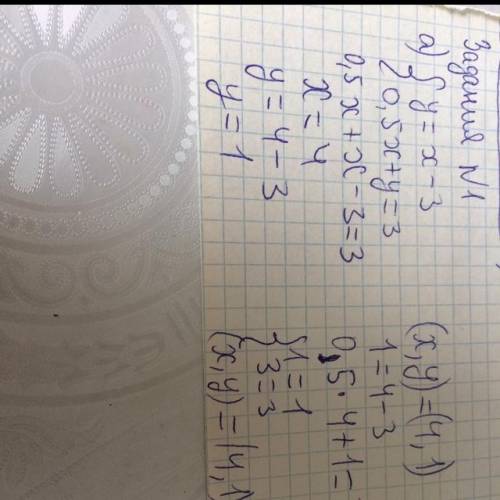 Задания N1
а) { y = x - 3
{ 0,5x + y = 3
0,5x + x - 3 = 3
x = 4
y = 4 - 3
y = 1
(x, y) = (4, 1)
1 = 4 - 3
0,5 · 4 + 1 =
{ 1 = 1
{ 3 = 3
(x, y) = (4, 1)